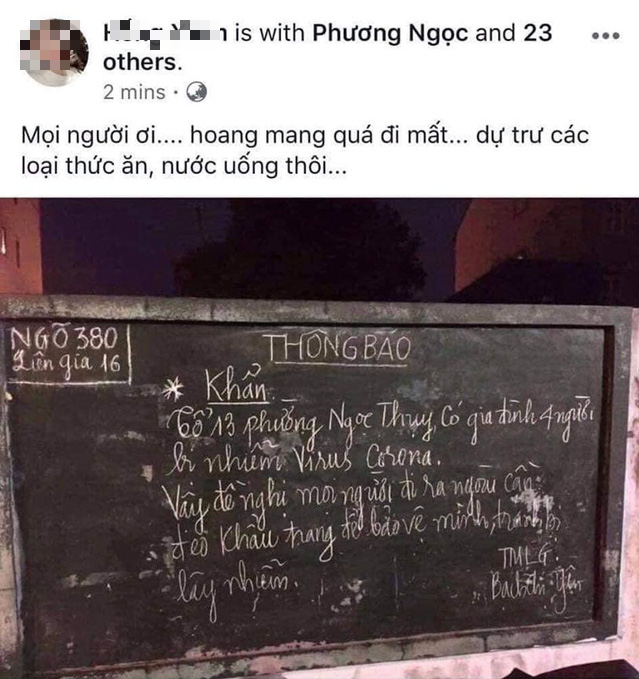 is with Phương Ngọc and 23
others.
2 mins ·
Mọi người ơi.... hoang mang quá đi mất... dự trư các
loại thức ăn, nước uống thôi...
NGÕ 380
Liên gia 16
THÔNG BÁO
* Khẩn.
Tổ 13 phường Ngọc Thụy, Có gia đình 4 người
bị nhiễm Virus Corona.
Vậy đề nghị mọi người đi ra ngoài cần
đeo khẩu trang để bảo vệ mình, tránh bị
lây nhiễm.
TMLG.
Bạch thị Yên